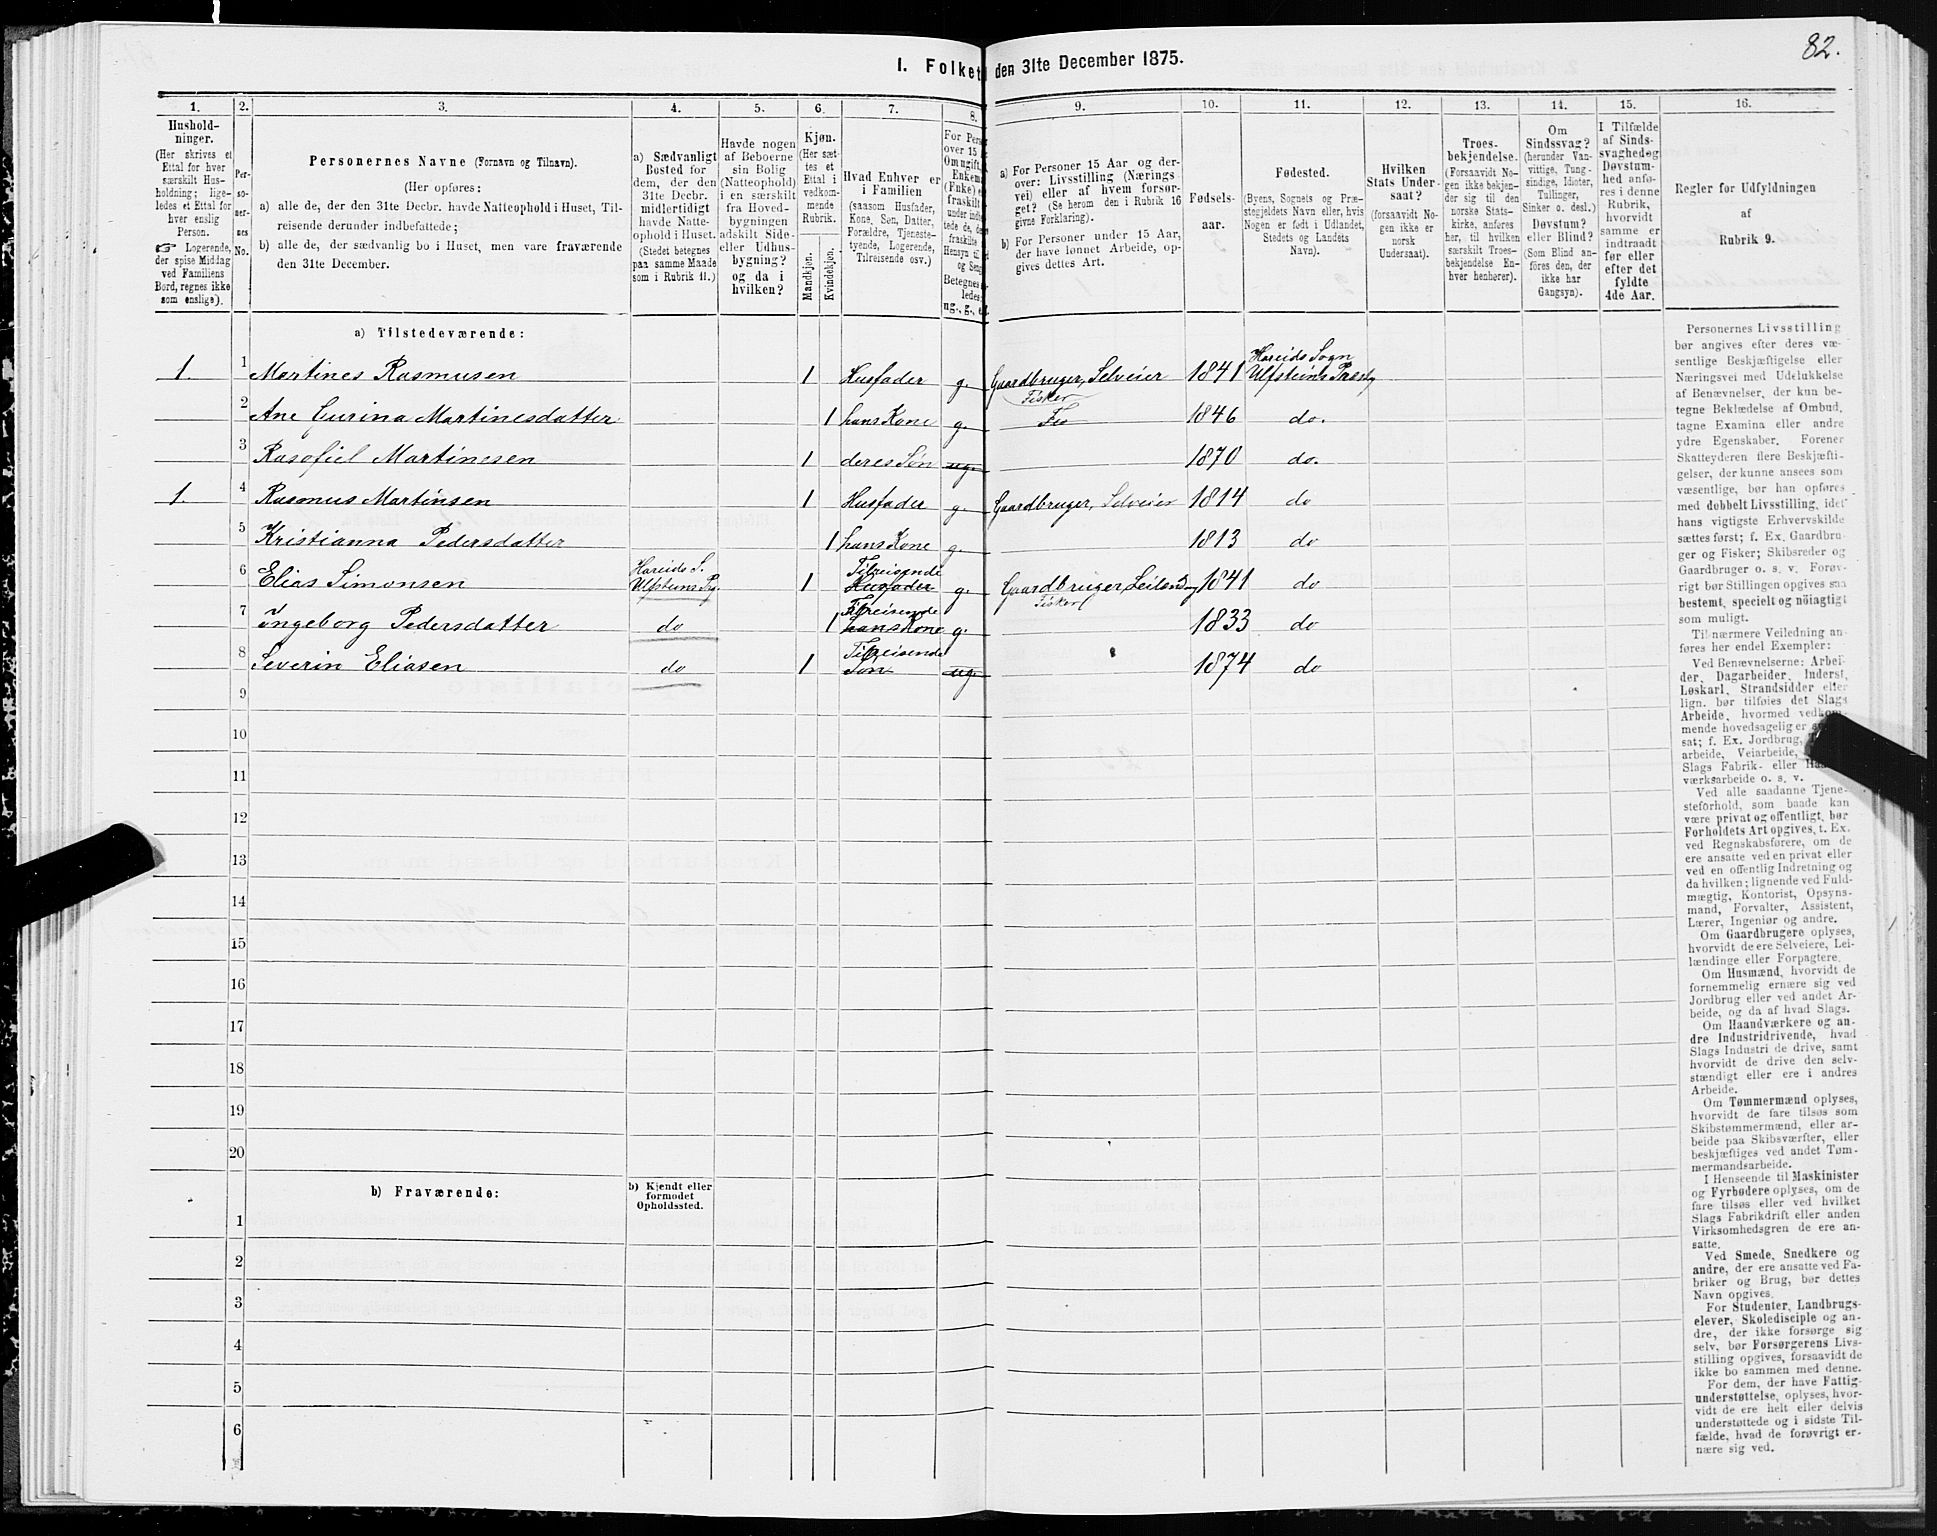 82.
I. Folket den 31te December 1875.
1. 2. 3. 4. 5. 6. 7. 8. 9. 10. 11. 12. 13. 14. 15. 16.
Hushold-
ninger.
(Her skrives et
Ettal for hver
særskilt Hus-
holdning; lige-
ledes et Ettal for
hver enslig
Person.
☞ Logerende,
der spise Middag
ved Familiens
Bord, regnes ikke
som enslige).
Per-
so-
ner-
nes
No.
Personernes Navne (Fornavn og Tilnavn).
(Her opføres:
a) alle de, der den 31te Decbr. havde Natteophold i Huset, Til-
reisende derunder indbefattede;
b) alle de, der sædvanlig bo i Huset, men vare fraværende
den 31te December.
a) Sædvanligt
Bosted for
dem, der den
31te Decbr.
midlertidigt
havde Natte-
ophold i Huset.
(Stedet betegnes
paa samme Maade
som i Rubrik 11.)
Havde nogen
af Beboerne
sin Bolig
(Natteophold)
i en særskilt
fra Hoved-
bygningen
adskilt Side-
eller Udhus-
bygning?
og da i
hvilken?
Kjøn.
(Her sæt-
tes et
Ettal i
vedkom-
mende
Rubrik.
Mandkjøn.
Kvindekjøn.
Hvad Enhver er
i Familien
(saasom Husfader,
Kone, Søn, Datter,
Forældre, Tjeneste-
tyende, Logerende,
Tilreisende osv.)
For Pers
over 15
Om ugift,
Enkem
(Fnke) e
fraskilt
under indb
tede de, de
fraskilte
Hensyn til
og Seng
Betegnes
ledes:
ug., g., e
a) For Personer 15 Aar og der-
over: Livsstilling (Nærings
vei) eller af hvem forsør-
get? (Se herom den i Rubrik 16
givne Forklaring).
b) For Personer under 15 Aar,
der have lønnet Arbeide, op-
gives dettes Art.
Fødsels-
aar.
Fødested.
(Byens, Sognets og Præ-
stegjeldets Navn eller, hvis
Nogen er født i Udlandet,
Stedets og Landets
Navn).
Hvilken
Stats Under-
saat?
(forsaavidt No-
gen ikke er
norsk
Undersaat).
Troes-
bekjendelse.
(Forsaavidt No-
gen ikke bekjen-
der sig til den
norske Stats-
kirke, anføres
her, til hvilken
særskilt Troes-
bekjendelse En-
hver henhører).
Om
Sindssvag?
(herunder Van-
vittige, Tung-
sindige, Idioter,
Tullinger,
Sinker o. desl.)
Døvstum?
eller Blind?
(Som Blind an-
føres den, der
ikke har
Gangsyn).
I Tilfælde
af Sinds-
svaghed og
Døvstum-
hed anfø-
res i denne
Rubrik,
hvorvidt
samme er
indtraadt
før eller
efter det
fyldte
4de Aar.
Regler for Udfyldningen
af
Rubrik 9.
a) Tilstedeværende:
1. 1 Martines Rasmusen 1 Husfader g. Gaardbruger, Selveier Fisker 1841 Hareids Sogn Ulfsteins Præstg
2 Ane Gurina Martinesdatter 1 hans Kone g. 1846 do.
3 Rasofiel Martinesen 1 deres Søn ug. 1870 do.
1. 4 Rasmus Martinsen 1 Husfader g. Gaardbruger, Selveier 1814 do
5 Kristianna Pedersdatter 1 hans Kone g. 1813 do
6 Elias Simonsen Hareids S. Ulfsteins Pg. 1 Tilreisende Husfader g. Gaardbruger, Leilending Fisker 1841 do
7 Ingeborg Pedersdatter do 1 Tilreisende hans Kone g. 1833 do
8 Severin Eliasen do 1 Tilreisende Søn ug. 1874 do
9
10
11
12
13
14
15
16
17
18
19
20
b) Fraværende:
b) Kjendt eller
formodet
Opholdssted.
1
2
3
4
5
6
Personernes Livsstilling
bør angives efter deres væ-
sentlige Beskjæftigelse eller
Næringsvei med Udelukkelse
af Benævnelser, der kun be-
tegne Beklædelse af Ombud,
tagne Examina eller andre
ydre Egenskaber. Forener
Skatteyderen flere Beskjæfti-
gelser, der kunne ansees som
væsentlige, bør han opføres
med dobbelt Livsstilling, idet
hans vigtigste Erhvervskilde
sættes først; f. Ex. Gaardbru-
ger og Fisker; Skibsreder og
Gaardbruger o. s. v. Forøv-
rigt bør Stillingen opgives saa
bestemt, specielt og nøiagtigt
som muligt.
Til nærmere Veiledning an-
føres her endel Exempler:
Ved Benævnelserne: Arbei-
der, Dagarbeider, Inderst,
Løskarl, Strandsidder eller
lign. bør tilføies det Slags
Arbeide, hvormed vedkom-
mende hovedsagelig er
sat; f. Ex. Jordbrug,
arbeide, Veiarbeide,
Slags Fabrik- eller
værksarbeide o. s. v.
Ved alle saadanne Tjene-
steforhold, som baade kan
være privat og offentligt, bør
Forholdets Art opgives, t. Ex.
ved Regnskabsførere, om de
ere ansatte ved en privat eller
ved en offentlig Indretning og
da hvilken; lignende ved Fuld-
mægtig, Kontorist, Opsyns-
mand, Forvalter, Assistent,
Lærer, Ingeniør og andre.
Om Gaardbrugere oplyses,
hvorvidt de ere Selveiere, Lei-
lændinge eller Forpagtere.
Om Husmænd, hvorvidt de
fornemmelig ernære sig ved
Jordbrug eller ved andet Ar-
beide, og da af hvad Slags.
Om Haandværkere og an-
dre Industridrivende, hvad
Slags Industri de drive, samt
hvorvidt de drive den selv-
stændigt eller ere i andres
Arbeide.
Om Tømmermænd oplyses,
hvorvidt de fare tilsøs som
Skibstømmermænd, eller ar-
beide paa Skibsværfter, eller
beskjæftiges ved andet Tøm-
mermandsarbeide.
I Henseende til Maskinister
og Fyrbødere oplyses, om de
fare tilsøs eller ved hvilket
Slags Fabrikdrift eller anden
Virksomhedsgren de ere an-
satte.
Ved Smede, Snedkere og
andre, der ere ansatte ved Fa-
briker og Brug, bør dettes
Navn opgives.
For Studenter, Landbrugs-
elever, Skoledisciple og an-
dre, der ikke forsørge sig
selv, bør Forsørgerens Livs-
stilling opgives, forsaavidt de
ikke bo sammen med denne.
For dem, der have Fattig-
understøttelse, oplyses, hvor-
vidt de ere helt eller delvis
understøttede og i sidste Til-
fælde, hvad de forøvrigt er-
nære sig ved.